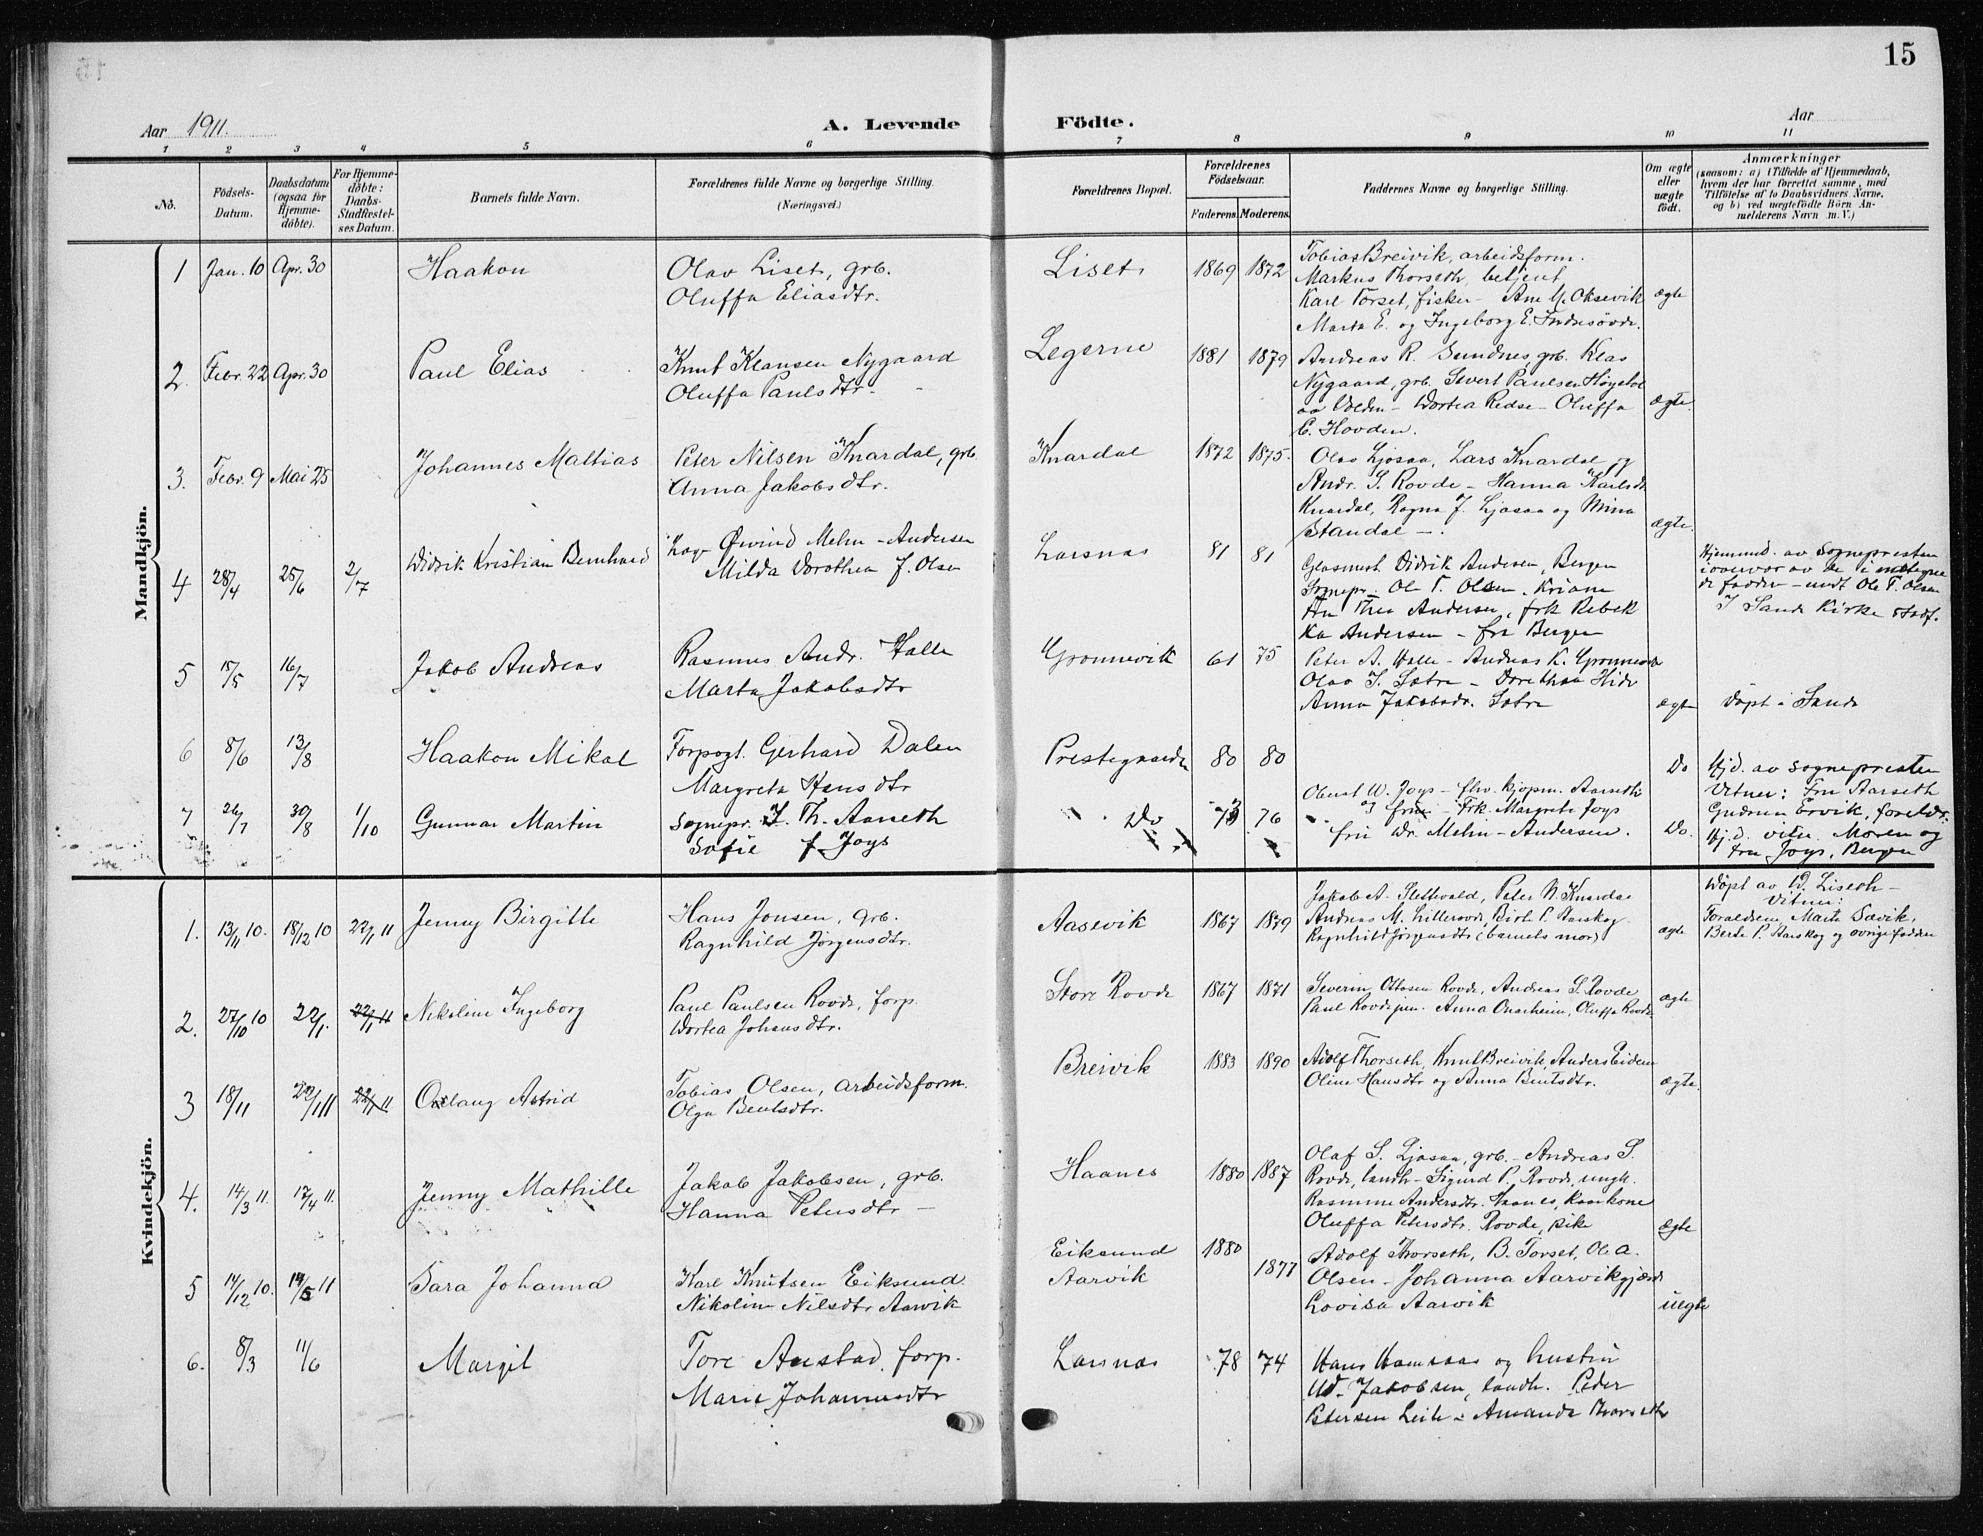 15
Aar 1911. A. Levende Födte. Aar
1 2 3 4 5 6 7 8 9 10 11
No. Födsels-Datum. Daabsdatum (ogsaa for Hjemme-döbte). For Hjemme-döbte: Daabs-Stadfestel-ses Datum. Barnets fulde Navn. Forældrenes fulde Navne og borgerlige Stilling. (Næringsvei.) Forældrenes Bopæl. Forældrenes Födselsaar. Faderens. Moderens. Faddernes Navne og borgerlige Stilling. Om ægte eller uægte födt. Anmærkninger (saasom: a) i Tilfælde af Hjemmedaab, hvem der har forrettet samme, med Tilföielse af to Daabsvidners Navne, og b) ved uægtefödte Börn An-melderens Navn m. V.)
Mandkjön.
1 Jan. 10 Apr. 30 Haakon Olav Liset, grb. Liset 1869 1872 Tobias Breivik, arbeidsform.
Oluffa Eliasdtr. Markus Thorseth, betjent
Karl Torset, fisker - Ane M. Oksevik ægte
Marta E. og Ingeborg E.
2. Febr. 22 Apr. 30 Paul Elias Knut Klausen Nygaard Legerne 1881 1879 Andreas R. Sundnes grb. Klas
Oluffa Paulsdtr. Nygaard, grb. Sivert Paulsen
Dortea Redse - Oluffa ægte.
E. Hovden.
3. Febr. 9 Mai 25 Johannes Mattias Peter Nilsen Knardal, grb. Knardal 1872 1875. Olav Ljosaa, Lars Knardal og
Anna Jakobsdtr. Andr. S. Rovde - Hanna Karlsdt.
Knardal, Ragna J. Ljosaa og Mina
Standal - . ægte.
4 28/4 25/6 2/7 Didrik Kristian Bernhard Øivind Mehn-Andersen Larsnas 81 81 Didrik Andersen, Bergen Hjemmed. av Sognepresten
Milda Dorothea f. Olsen Sognepr. Ol T. Olsen. i overvær av de
Fru Thea Andersen, frk Rebek fadder - undt Ole T. Olsen
ka Andersen - fra Bergen I Sands Kirke stadf.
5 15/5 16/7 Jakob Andreas Rasmus Andr. Halle Grønnevik 61 75 Peter A. Halle - Andreas K. Grønnevik
Marta Jakobsdtr Olav J. Sætre - Dorethea
Anna Jakobsdr. Sætre ægte Döpt i Sande
6 8/6 13/8 Haakon Mikal Forpagt. Gerhard Dalen Prestegaarden 80 80 Do Hjd. av Sognepresten
Margreta Hansdtr Vitner: Fru Aarseth
7 26/7 30/8 1/10 Gunnar Martin Sognepr. J. Th. Aarseth Do 73 76 Oberst W. Joys - fhv. kjøpm. Aarseth Gudrun Ervik, foreldr.
Sofie f. Joys og frue Frk Margrete Joys Hj.d. vitn. Moren og
fru Dr. Mehn-Andersen. Do. fru Joys, Bergen
Kvindekjön.
1. 13/11 10. 18/12 10 22/1 11 Jenny Birgitte Hans Jonsen, grb. Aasevik 1867 1879 Jakob A. Slettvold, Peter N. Knardal Döpt av D. Liseth -
Ragnhild Jørgensdtr. Andreas M. Lillerovde Birt. P. Aarskog. Vitner:
Ragnhild Jørgensdtr (barnets mor) ægte Foreldrene, Marte Sævik,
Berte P. Aarskog og övrige faddere
2. 27/10 10 22/1. 22/1 11 Nikoline Ingeborg Paul Paulsen Rovde, forp. Store Rovde 1867 1871 Severin Ottosen Rovde, Andreas S. Rovde
Dortea Johansdtr. Paul Rovde jun. Anna Onarheim, Oluffa Rovde ægte
3 18/11 22/1 11 22/1 11 Oslaug Astrid Tobias Olsen, arbeidsform. Breivik 1883 1890 Adolf Thorseth, Knut Breivik, Anders Eidem
Olga Bentsdtr. Oline Hansdtr og Anna Bentsdtr. ægte.
4. 14/3 11. 17/4 11. Jenny Mathilde Jakob Jakobsen, grb. Haanes 1880 1887 Olaf S. Ljosaa, grb. - Andreas S.
Hanna Petersdtr - Rovde, landh - Sigurd P. Rovde, ungk.
Rasmine Andersdtr. Haanes, kaarkone
Oluffa Petersdtr. Rovde, pike ægte
5 14/12 10. 14/5 11 Sara Johanna Karl Knutsen Eiksund Eiksund 1880 Adolf Thorseth, B. Torset, Ole A.
Nikoline Nilsdtr Aarvik Aarvik 1877 Olsen - Johanna Aarvikgjærde
Lovisa Aarvik uægte
6. 8/3 11/6 Margit Tore Aurstad, forp. Larsnas 78 74 Hans Hamsaas og hustru
Marie Johannesdtr Ud. Jakobsen, landh. Peder
Petersen Leite - Amanda Thorseth